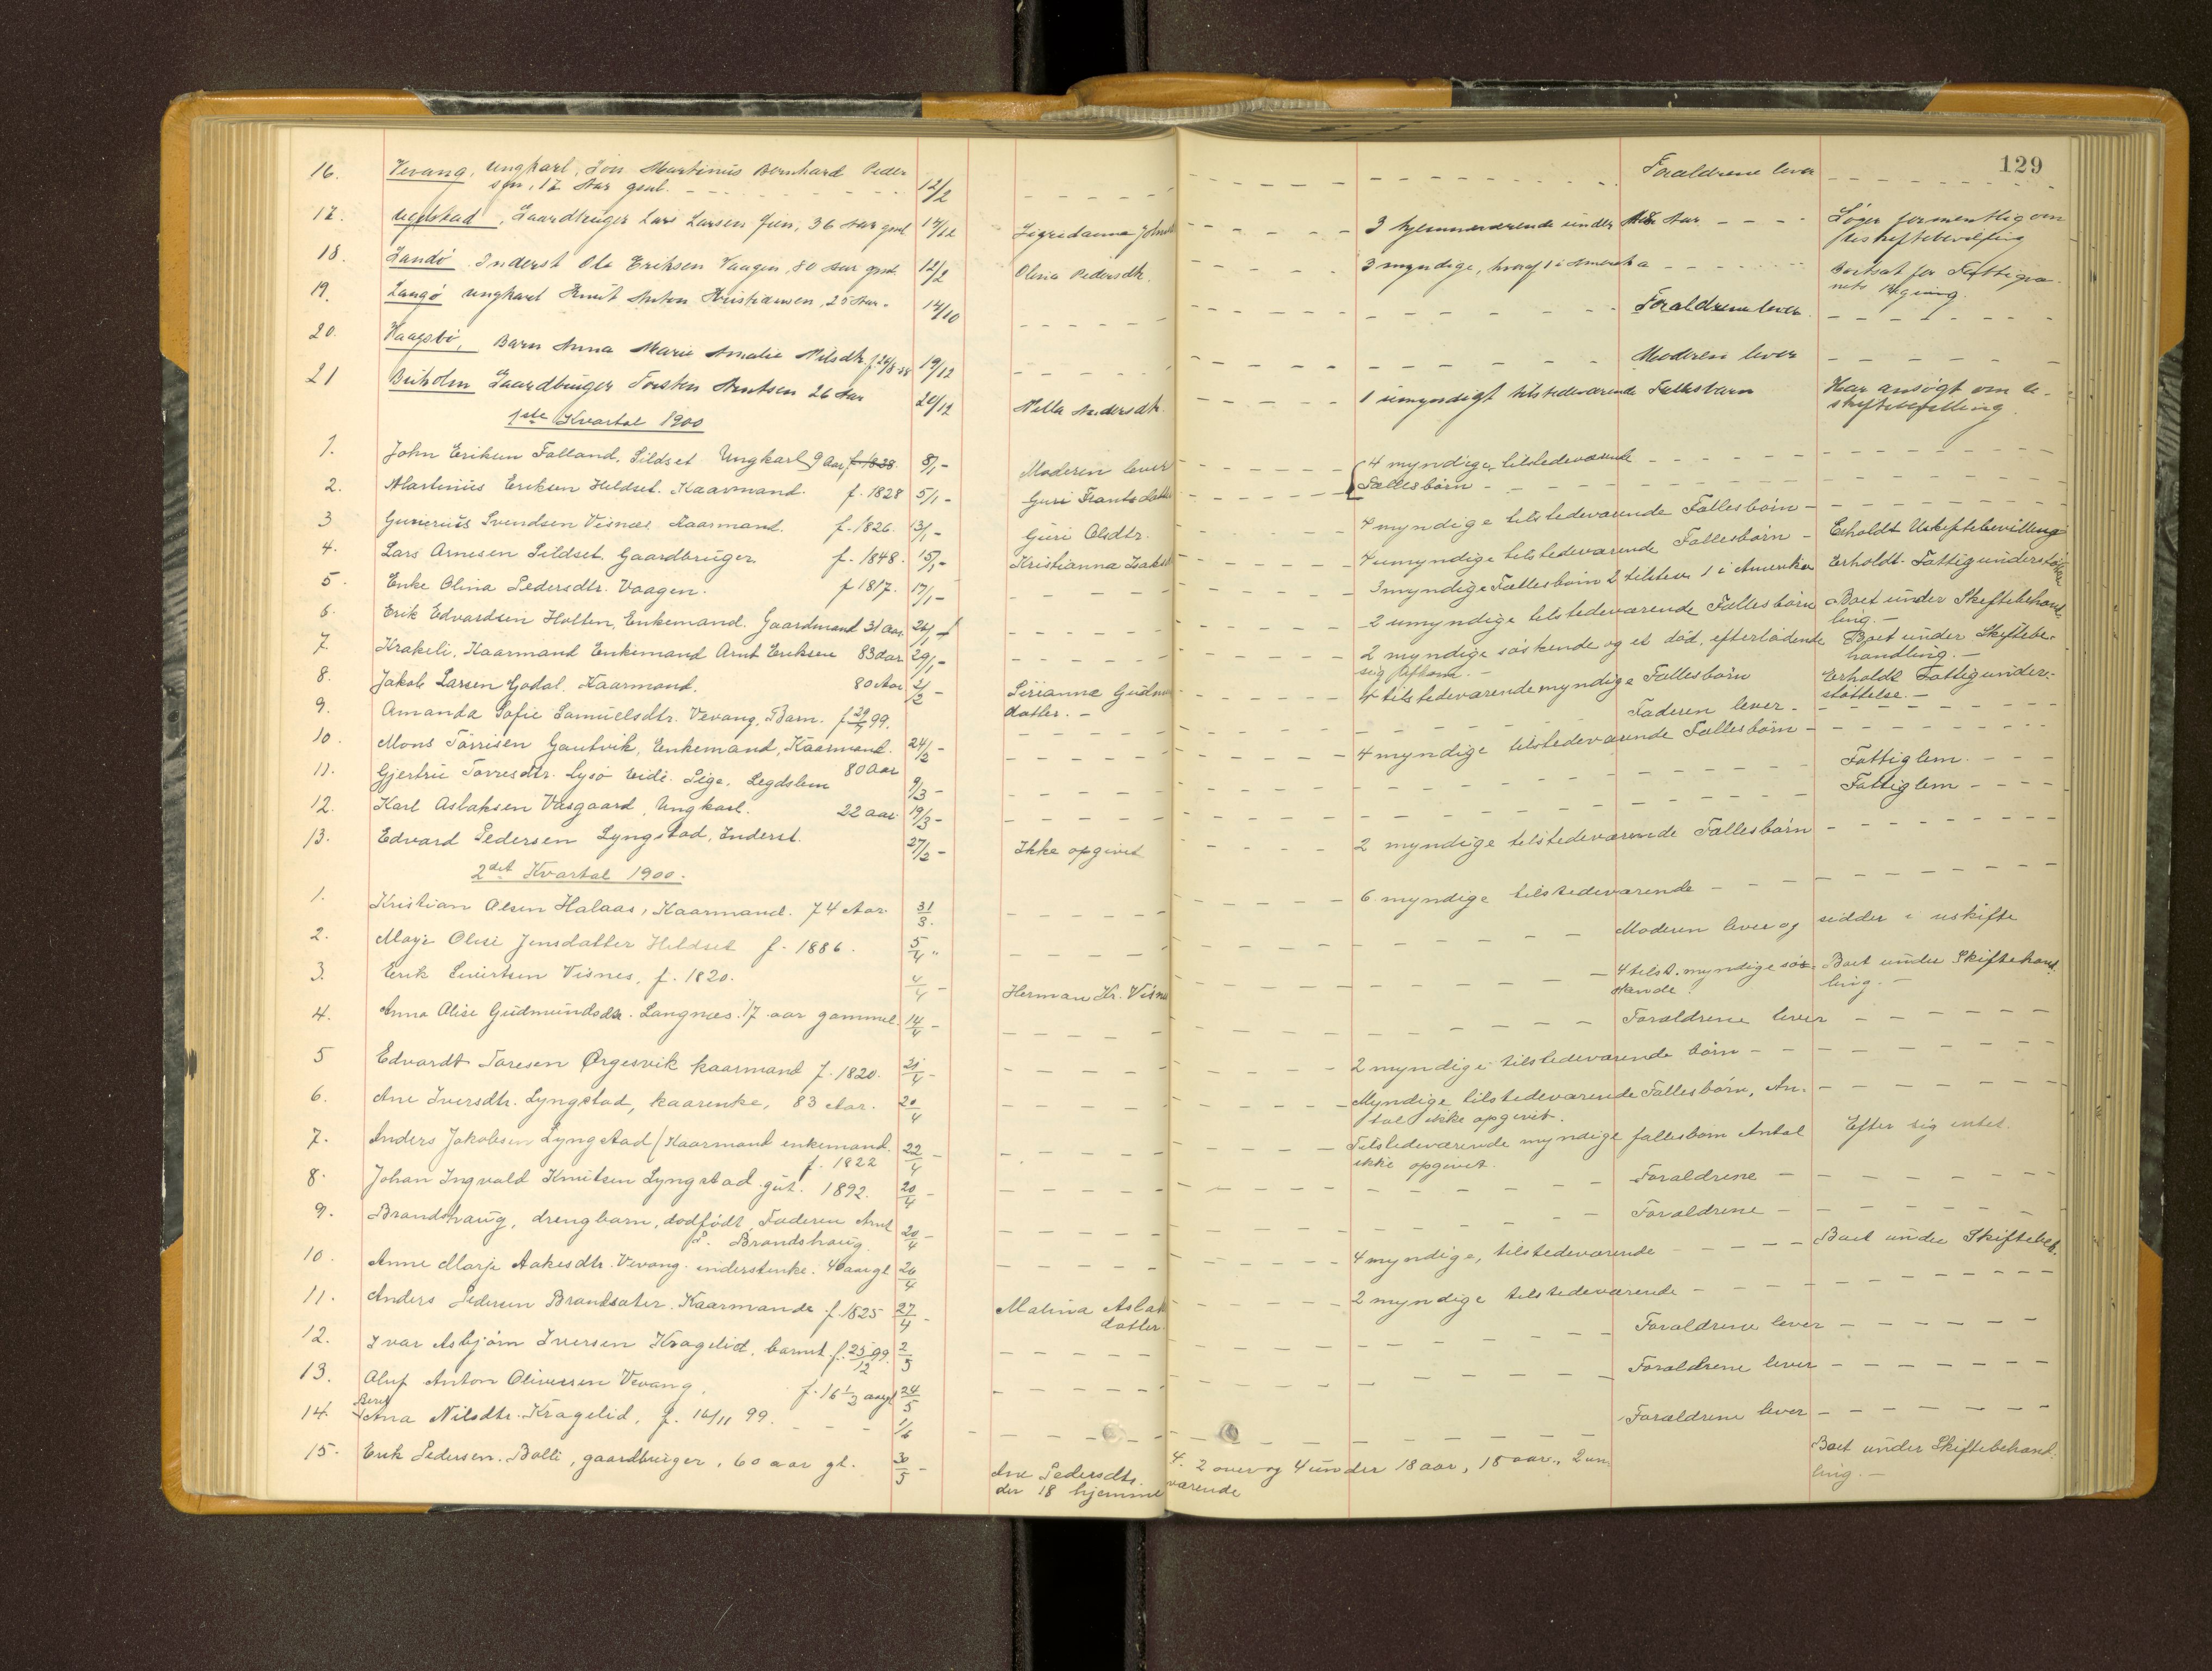 129
16. Vevang, ungkarl, Jon Martinus Bernhard Peder
sen, 17 Aar gml. 12/2 Forældrene lever
17. Gaardbruger Lars Larsen Jun, 36 Aar gml 3 hjemmeværende under 18 Aar Søger formentlig om
uskiftebevilling
18. Sandø Inderst Ole Eriksen Vaagen, 80 Aar gml. 12/2 Olina Pedersdtr. 3 myndige, hvoraf 1 i Amerika Bortsat for Fattigvæ
nets Regning.
19. Langø ungkarl Knut Anton Kristiansen, 25 Aar. 14/10 Forældrene lever
20. Haagsbø, Barn Anna Marie Amalie Nilsdtr. 19/12 Moderen lever
21 Gaardbruger Torsten Arntsen 26 Aar 20/12 Nella Andersdtr. 1 umyndigt tilstedeværende Fællesbarn Har ansøgt om u-
skiftebevilling
1ste Kvartal 1900
1. John Eriksen Folland, Sildset Ungkarl 9 Aar f. 1828. 8/1 - Moderen lever 4 myndige, tilstedeværende
2. Martinus Eriksen Heldset. Kaarmand. f. 1828 5/1 - Guri Frantsdatter Fællesbørn
3 Svendsen Visnæs, Kaarmand. f. 1826. 13/1 - Guri Olsdtr. 4 myndige tilstedeværende Fællesbørn -
4. Lars Arnesen Sildset. Gaardbruger f. 1848. 15/1 - Kristianna Isaks 4 umyndige tilstedeværende Fællesbørn - Erholdt Uskiftebevilling
5. Enke Olina Pedersdtr. Vaagen. f 1817. 17/1 - 3 myndige Fællesbørn 2 tilstev. 1 i Amerika Erholdt. Fattigunderstøttelse
6. Erik Edvardsen Holten, Enkemand. Gaardmand 31 Aar. 26/1 - 2 umyndige tilstedeværende Fællesbørn Boet under Skiftebehand-
ling. -
7. Krakeli, Kaarmand Enkemand Arnt Eriksen 83 Aar 29/1 - 2 myndige søskende og et død, efterladende Boet under Skiftebe-
sig Afkom. - handling. -
8. Jakob Larsen Godal. Kaarmand. 80 Aar 2/2 - Sirianna Gudmu 4 tilstedeværende myndige Fællesbørn Erholdt Fattigunder-
datter. - støttelse. -
9. Amanda Sofie Samuelsdtr. Vevang, Barn. Faderen lever -
10. Mons Tørrisen Gautvik, Enkemand, Kaarmand. 24/2 - 4 myndige tilstedeværende Fællesbørn -
80 Aar
11. Gjertru Torresdtr. Lysø Pige, Legdslem 9/3 - Fattiglem
12. Karl Aslaksen Vasgaard, Ungkarl. 22 Aar 19/3 - Fattiglem
13. Edvard Pedersen Lyngstad, Inderst. 27/2 - Ikke opgivet 2 myndige tilstedeværende Fællesbørn
2det Kvartal 1900.
1. Kristian Olsen Halaas, Kaarmand. 74 Aar. 31/3. 6 myndige tilstedeværende
2. Olise Jensdatter Heldset f. 1886. 5/4 " Moderen lever og sidder i uskifte
3. Erik Visnes, f. 1820. 4/4 - Herman Kr. Visne 4 tilst. myndige søs- Boet under Skiftehand-
kende. ling. -
4. Anna Olise Gudmundsdtr. Langnæs. 17 aar gammel. 14/4 - Forældrene lever
5 Edvardt Toresen Ørgesvik kaarmand f. 1820. 21/4 - 2 myndige tilstedeværende børn
6. Ane Iversdtr. Lyngstad, kaarenke, 83 Aar. 20/4 Myndige tilstedeværende Fællesbørn, An-
tal ikke opgivet.
7. Anders Jakobsen Lyngstad / Kaarmand enkemand. 22/4 - Tilstedeværende myndige fællesbørn Antal Efter sig intet.
f. 1822 ikke opgivet.
8. Johan Ingvald Knutsen Lyngstad gut. 1892. 20/4 - Forældrene
9. Brandshaug, drengbarn, dødfødt, Faderen Arnt 20/4 - Forældrene
P. Brandshaug
10. Anne Marje Aakesdtr. Vevang inderstenke. aar gl 26/4 4 myndige, tilstedeværende Boet under Skiftebeh.
11. Anders Pedersen Brandsæter. Kaarmand f. 1825 27/4 - Malina Aslak 2 myndige tilstedeværende
datter.
12. Ivar Asbjørn Iversen Kragelid, barnt f. 25/12 99. 2/5 Forældrene lever
13. Oluf Anton Oliversen Vevang, f. 16 1/2 aar gl 24/5 Forældrene lever
14. Berit Ana Nilsdtr. Kragelid, f. 16/11 99. 1/6 Forældrene lever
15. Erik Pedersen. Bolli, gaardbruger, 60 aar gl. 30/5 - Ane Pedersdtr. 4. 2 over og 4 under 18 aar, 18 aar, 2 un Boet under Skiftebehand-
der 18 hjemme værende ling. -